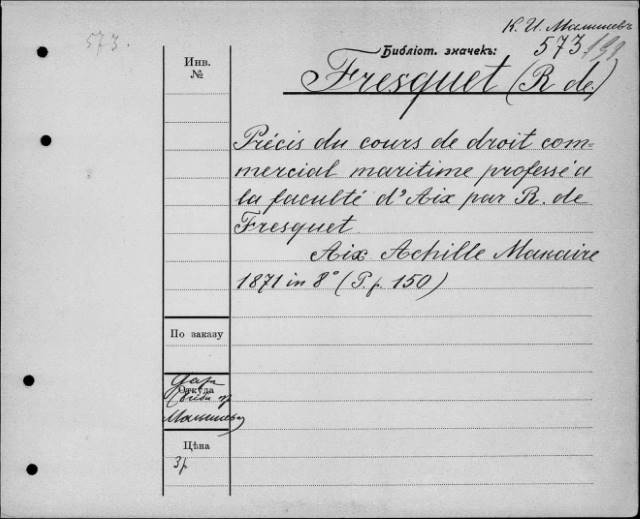 К. И. Малышевъ
573.
Библіот. значекъ: 573
Инв. №
Fresquet (R de.)
Précis du cours de droit com=
mercial maritime professé a
la faculté d'Aix par R. de
Fresquet
Aix Achille Makaire
1871 in 8° (P. p. 150)
По заказу
Откуда
Даръ
Малышева
Цѣна
3 р